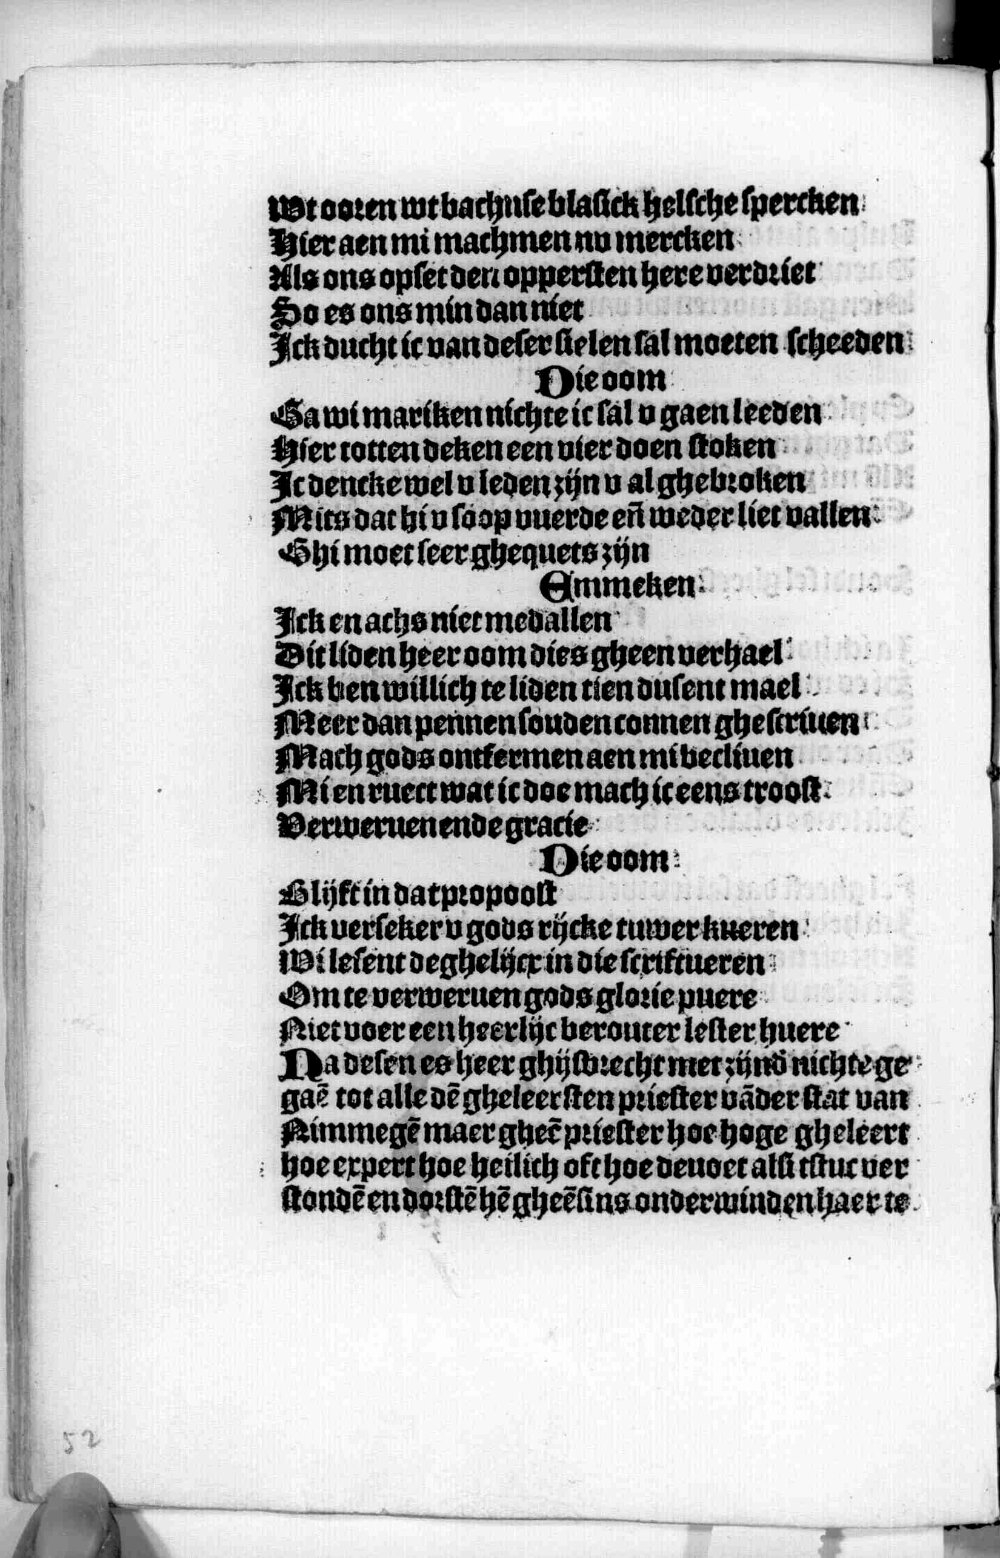 Wt ooren wt bachuse blasick helsche spercken
Hier aen mi machmen nv mercken
Als ons opset den oppersten here verdriet
So es ons min dan niet
Ick ducht ic van deser sielen sal moeten scheeden
Die oom
Ga wi mariken nichte ic sal v gaen leeden
Hier totten deken een vier doen stoken
Ic dencke wel v leden zijn v al ghebroken
Mits dat hi v so op vuerde eñ weder liet vallen
Ghi moet seer ghequets zijn
Emmeken
Ick en achs niet med allen
Dit liden heer oom dies gheen verhael
Ick ben willich te liden tien dusent mael
Meer dan pennen souden connen ghescriuen
Mach gods ontfermen aen mi becliuen
Mi en ruect wat ic doe mach ic eens troost
Verweruen ende gracie
Die oom
Blijft in dat propoost
Ick verseker v gods rijcke tuwer kueren
Wi lesent deghelijcx in die scriftueren
Om te verweruen gods glorie puere
Niet voer een heerlijc berouter lester huere
Na desen es heer ghijsbrecht met zijnd nichte ge
gaē tot alle dē gheleersten priester vāder stat van
Nimmegē maer gheē priester hoe hoge gheleert
hoe expert hoe heilich oft hoe deuoet alsi tstuc ver
stondē en dorstē hē gheēsins onderwinden haer te
52